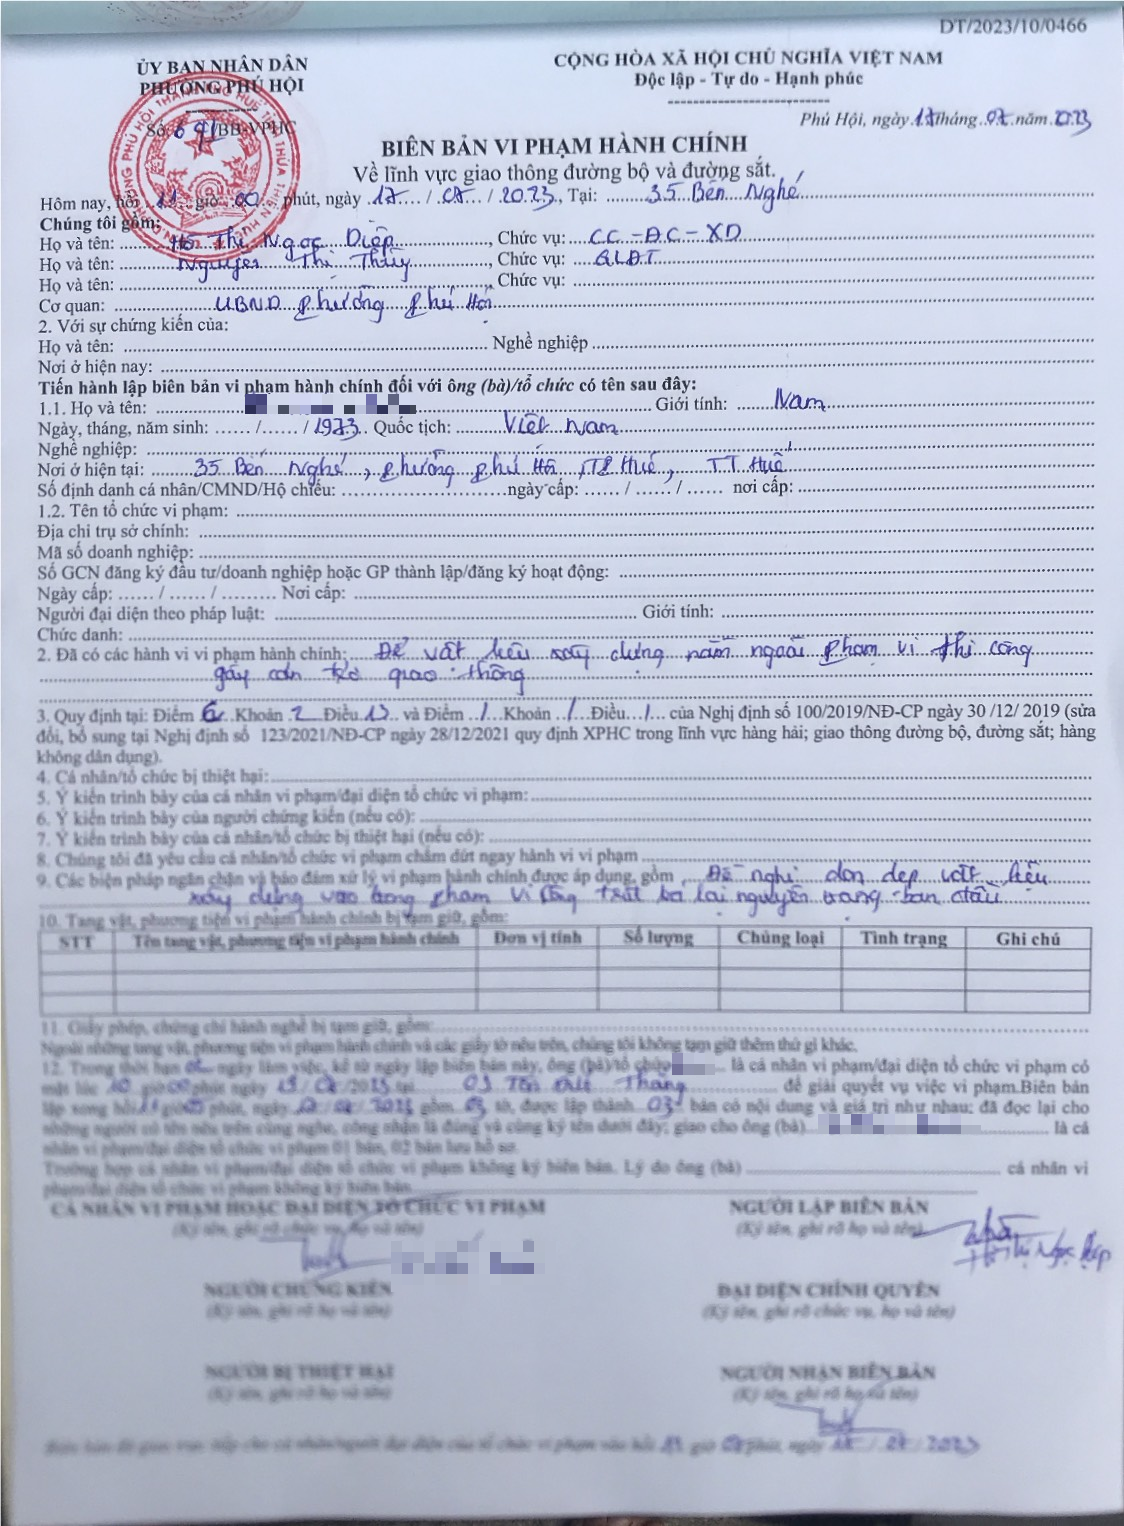 DT/2023/10/0466
ỦY BAN NHÂN DÂN
PHƯỜNG PHÚ HỘI
CỘNG HÒA XÃ HỘI CHỦ NGHĨA VIỆT NAM
Độc lập - Tự do - Hạnh phúc
Số /BB-VPHC
Phú Hội, ngày 17 tháng 07 năm 2023
BIÊN BẢN VI PHẠM HÀNH CHÍNH
Về lĩnh vực giao thông đường bộ và đường sắt.
Hôm nay, hồi 11 giờ 00 phút, ngày 17 / 07 / 2023, Tại: 35 Bến Nghé
Chúng tôi gồm:
Họ và tên: Hồ Thị Ngọc Diệp, Chức vụ: CC-ĐC-XD
Họ và tên: Nguyễn Thị Thủy, Chức vụ: QLĐT
Họ và tên: , Chức vụ:
Cơ quan: UBND phường Phú Hội
2. Với sự chứng kiến của:
Họ và tên: Nghề nghiệp
Nơi ở hiện nay:
Tiến hành lập biên bản vi phạm hành chính đối với ông (bà)/tổ chức có tên sau đây:
1.1. Họ và tên: Giới tính: Nam
Ngày, tháng, năm sinh: ...... /...... / 1973 Quốc tịch: Việt Nam
Nghề nghiệp:
Nơi ở hiện tại: 35 Bến Nghé, phường Phú Hội, TP Huế, T.T. Huế
Số định danh cá nhân/CMND/Hộ chiếu: ngày cấp: ...... / ...... / ...... nơi cấp:
1.2. Tên tổ chức vi phạm:
Địa chỉ trụ sở chính:
Mã số doanh nghiệp:
Số GCN đăng ký đầu tư/doanh nghiệp hoặc GP thành lập/đăng ký hoạt động:
Ngày cấp: ...... / ...... / ......... Nơi cấp:
Người đại diện theo pháp luật: Giới tính:
Chức danh:
2. Đã có các hành vi vi phạm hành chính: Để vật liệu xây dựng nằm ngoài phạm vi thi công
gây cản trở giao thông
3. Quy định tại: Điểm Khoản 2 Điều 13 và Điểm / Khoản / Điều / của Nghị định số 100/2019/NĐ-CP ngày 30 /12/ 2019 (sửa
đổi, bổ sung tại Nghị định số 123/2021/NĐ-CP ngày 28/12/2021 quy định XPHC trong lĩnh vực hàng hải; giao thông đường bộ, đường sắt; hàng
không dân dụng).
4. Cá nhân/tổ chức bị thiệt hại:
5. Ý kiến trình bày của cá nhân vi phạm/đại diện tổ chức vi phạm:
6. Ý kiến trình bày của người chứng kiến (nếu có):
7. Ý kiến trình bày của cá nhân/tổ chức bị thiệt hại (nếu có):
8. Chúng tôi đã yêu cầu cá nhân/tổ chức vi phạm chấm dứt ngay hành vi vi phạm
9. Các biện pháp ngăn chặn và bảo đảm xử lý vi phạm hành chính được áp dụng, gồm Đề nghị dọn dẹp vật liệu
xây dựng vào trong phạm vi công trình trả lại nguyên trạng ban đầu
10. Tang vật, phương tiện vi phạm hành chính bị tạm giữ, gồm:
STT Tên tang vật, phương tiện vi phạm hành chính Đơn vị tính Số lượng Chủng loại Tình trạng Ghi chú
11. Giấy phép, chứng chỉ hành nghề bị tạm giữ, gồm:
Ngoài những tang vật, phương tiện vi phạm hành chính và các giấy tờ nêu trên, chúng tôi không tạm giữ thêm thứ gì khác.
12. Trong thời hạn 02 ngày làm việc, kể từ ngày lập biên bản này, ông (bà)/tổ chức là cá nhân vi phạm/đại diện tổ chức vi phạm có
mặt lúc 10 giờ 00 phút ngày 19 / 07 / 2023 tại 03 Tôn Đức Thắng để giải quyết vụ việc vi phạm.Biên bản
lập xong hồi 11 giờ phút, ngày / 07 / 2023 gồm 03 tờ, được lập thành 03 bản có nội dung và giá trị như nhau; đã đọc lại cho
những người có tên nêu trên cùng nghe, công nhận là đúng và cùng ký tên dưới đây; giao cho ông (bà) là cá
nhân vi phạm/đại diện tổ chức vi phạm 01 bản, 02 bản lưu hồ sơ.
Trường hợp cá nhân vi phạm/đại diện tổ chức vi phạm không ký biên bản. Lý do ông (bà) cá nhân vi
phạm/đại diện tổ chức vi phạm không ký biên bản
CÁ NHÂN VI PHẠM HOẶC ĐẠI DIỆN TỔ CHỨC VI PHẠM
(Ký tên, ghi rõ chức vụ, họ và tên)
NGƯỜI LẬP BIÊN BẢN
(Ký tên, ghi rõ họ và tên)
Hồ Thị Ngọc Diệp
NGƯỜI CHỨNG KIẾN
(Ký tên, ghi rõ họ và tên)
ĐẠI DIỆN CHÍNH QUYỀN
(Ký tên, ghi rõ chức vụ, họ và tên)
NGƯỜI BỊ THIỆT HẠI
(Ký tên, ghi rõ họ và tên)
NGƯỜI NHẬN BIÊN BẢN
(Ký tên, ghi rõ họ và tên)
Biên bản đã giao trực tiếp cho cá nhân/người đại diện của tổ chức vi phạm vào hồi 11 giờ phút, ngày / 07 / 2023